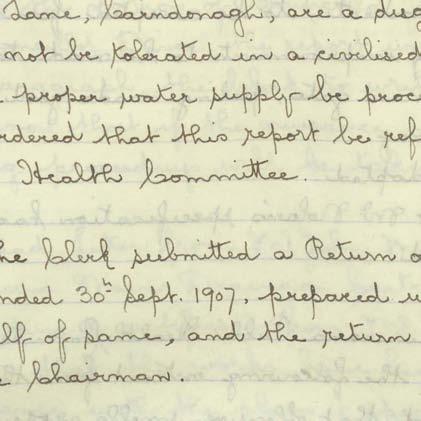 Lane, Carndonagh, are a disg
not be tolerated in a civilised
proper water supply be proc
rdered that this report be ref
Health Committee.
he Clerk submitted a Return o
nded 30th Sept. 1907, prepared u
lf of same, and the return
e Chairman.